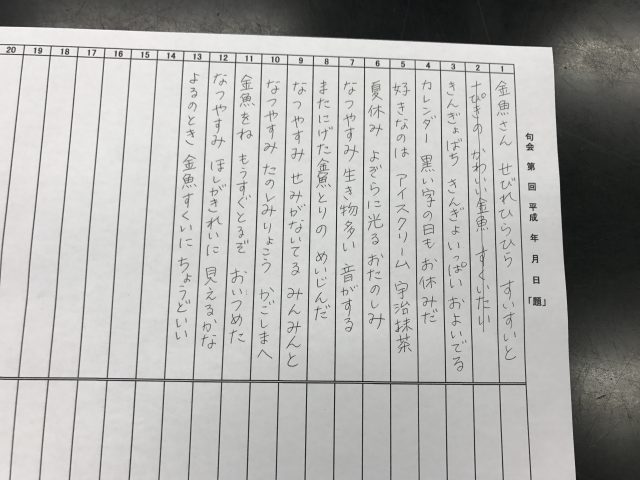 句会 第 回 平成 年 月 日 「題」
1 金魚さん せびれひらひら すいすいと
2 十ぴきの かわいい金魚 すくいたい
3 きんぎょばち きんぎょいっぱい およいでる
4 カレンダー 黒い字の日も お休みだ
5 好きなのは アイスクリーム 宇治抹茶
6 夏休み よぞらに光る おたのしみ
7 なつやすみ 生き物多い 音がする
8 またにげた 金魚とりの めいじんだ
9 なつやすみ せみがないてる みんみんと
10 なつやすみ たのしみりょこう かごしまへ
11 金魚をね もうすぐとるぞ おいつめた
12 なつやすみ ほしがきれいに 見えるかな
13 よるのとき 金魚すくいに ちょうどいい
14
15
16
17
18
19
20